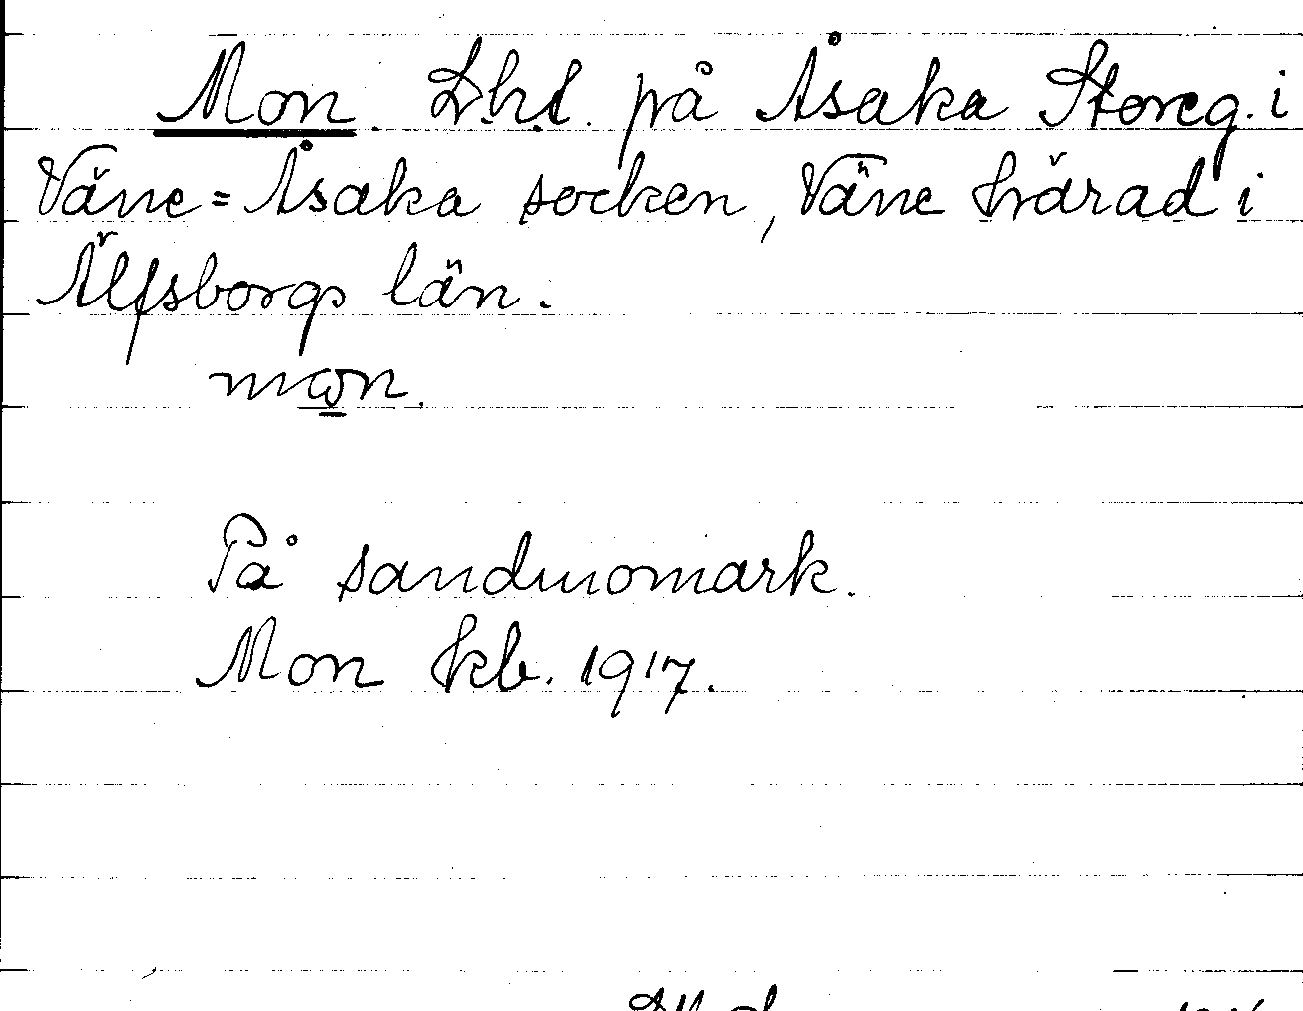 Mon. Lht. på Åsaka Storeg. i
Väne=Åsaka socken, Väne härad i
Älfsborgs län.
På sandmomark.
Mon kb. 1917.